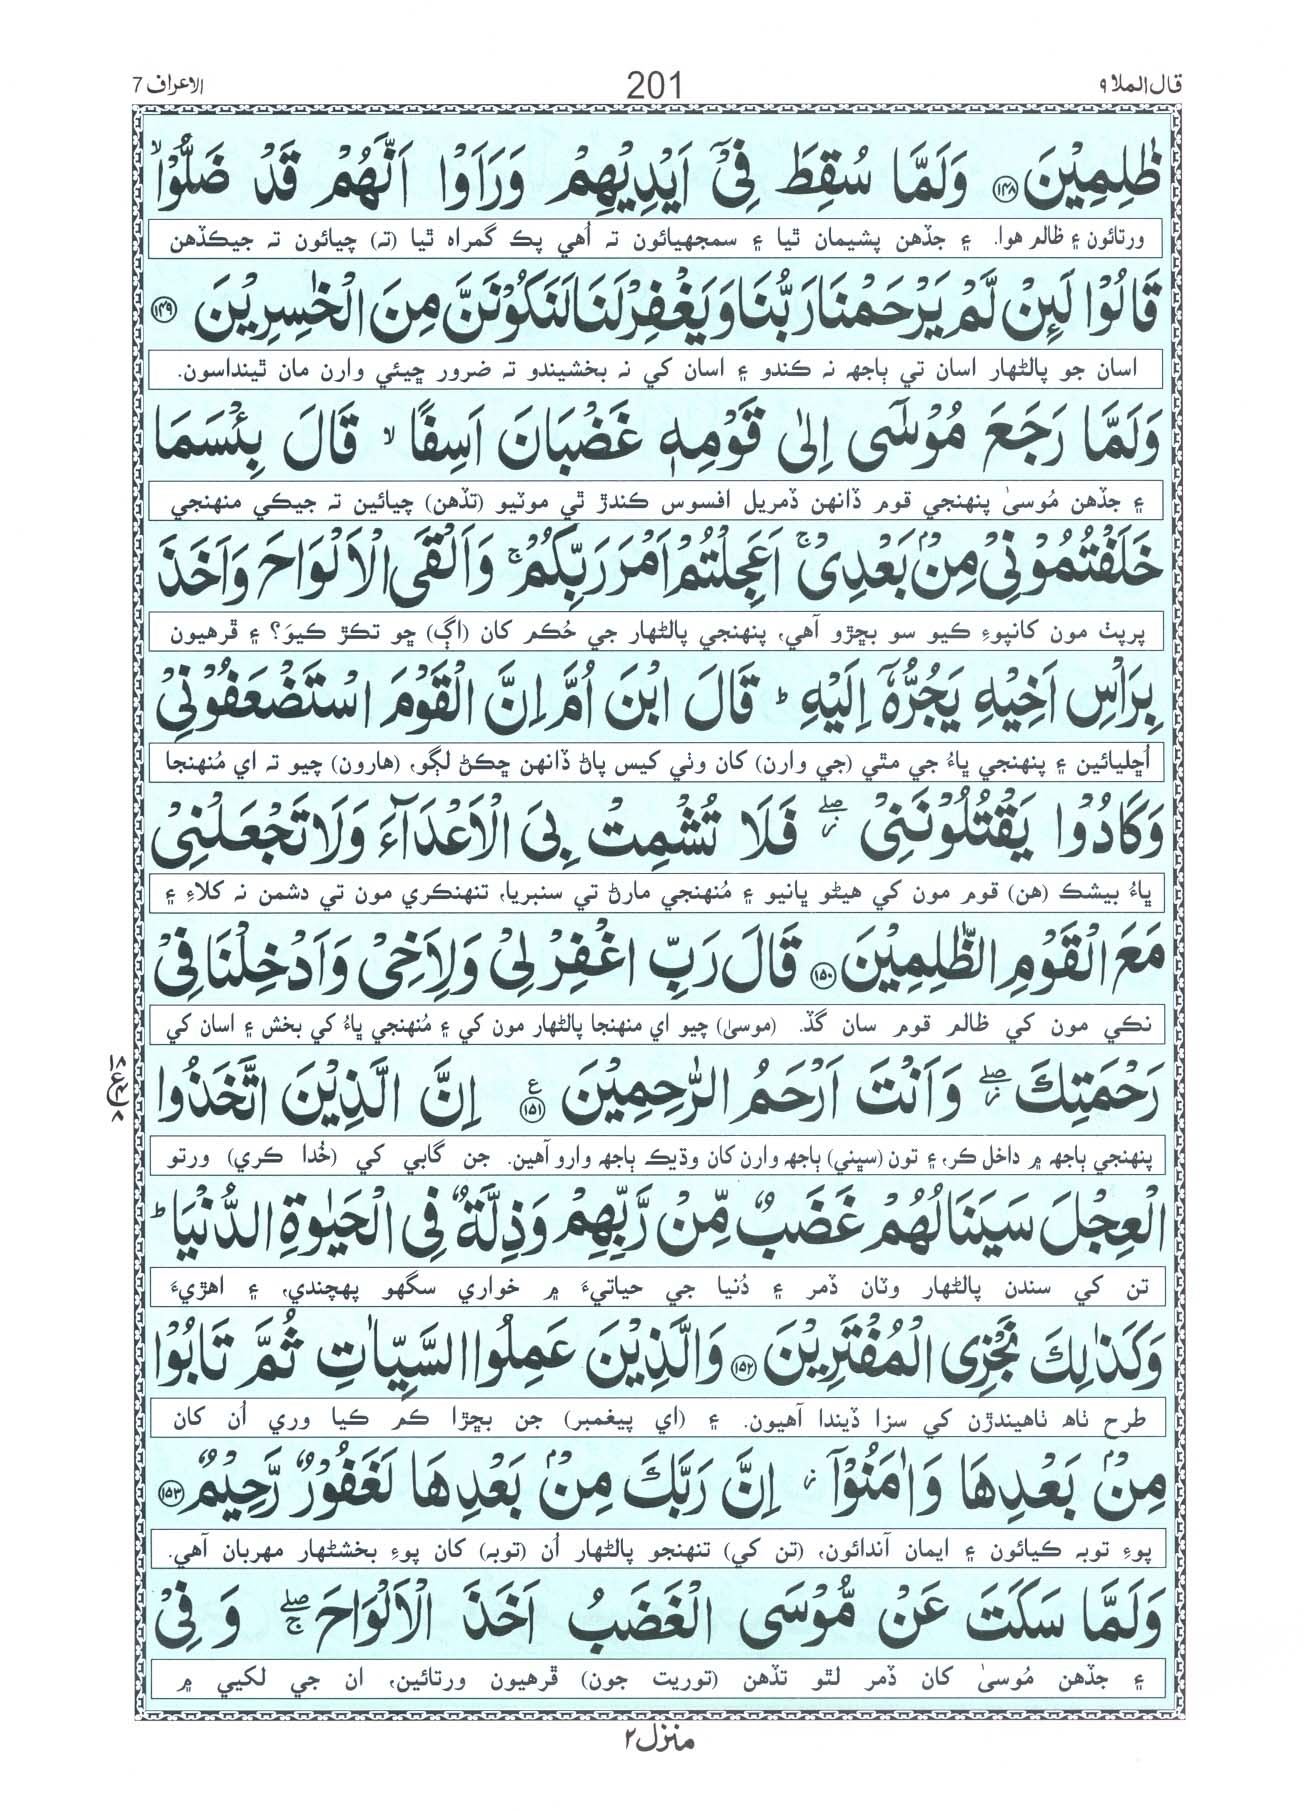 قال الملا ۹
201
الاعراف 7
ظٰلِمِیْنَ ﴿۱۴۸﴾ وَلَمَّا سُقِطَ فِیْۤ اَیْدِیْهِمْ وَرَاَوْا اَنَّهُمْ قَدْ ضَلُّوْا ۙ
ورتائون ۽ ظالم هوا. ۽ جڏهن پشيمان ٿيا ۽ سمجهيائون ته اُهي پڪ گمراه ٿيا (ته) چيائون ته جيڪڏهن
قَالُوْا لَىِٕنْ لَّمْ یَرْحَمْنَا رَبُّنَا وَیَغْفِرْ لَنَا لَنَكُوْنَنَّ مِنَ الْخٰسِرِیْنَ ﴿۱۴۹﴾
اسان جو پالڻهار اسان تي ٻاجهه نه ڪندو ۽ اسان کي نه بخشيندو ته ضرور ڇيئي وارن مان ٿينداسون.
وَلَمَّا رَجَعَ مُوْسٰۤی اِلٰی قَوْمِهٖ غَضْبَانَ اَسِفًا ۙ قَالَ بِئْسَمَا
۽ جڏهن مُوسىٰ پنهنجي قوم ڏانهن ڏمريل افسوس ڪندڙ ٿي موٽيو (تڏهن) چيائين ته جيڪي منهنجي
خَلَفْتُمُوْنِیْ مِنْۢ بَعْدِیْ ۚ اَعَجِلْتُمْ اَمْرَ رَبِّكُمْ ۚ وَاَلْقَی الْاَلْوَاحَ وَاَخَذَ
پرپٺ مون کانپوءِ ڪيو سو بڇڙو آهي، پنهنجي پالڻهار جي حُڪم کان (اڳ) ڇو تڪڙ ڪيوَ؟ ۽ ڦرهيون
بِرَاْسِ اَخِیْهِ یَجُرُّهٗۤ اِلَیْهِ ؕ قَالَ ابْنَ اُمَّ اِنَّ الْقَوْمَ اسْتَضْعَفُوْنِیْ
اُڇليائين ۽ پنهنجي ڀاءُ جي مٿي (جي وارن) کان وٺي کيس پاڻ ڏانهن ڇڪڻ لڳو، (هارون) چيو ته اي مُنهنجا
وَكَادُوْا یَقْتُلُوْنَنِیْ ۖؗ فَلَا تُشْمِتْ بِیَ الْاَعْدَآءَ وَلَا تَجْعَلْنِیْ
ڀاءُ بيشڪ (هن) قوم مون کي هيڻو ڀانيو ۽ مُنهنجي مارڻ تي سنبريا، تنهنڪري مون تي دشمن نه کلاءِ ۽
مَعَ الْقَوْمِ الظّٰلِمِیْنَ ﴿۱۵۰﴾ قَالَ رَبِّ اغْفِرْ لِیْ وَلِاَخِیْ وَاَدْخِلْنَا فِیْ
نڪي مون کي ظالم قوم سان گڏ. (موسىٰ) چيو اي منهنجا پالڻهار مون کي ۽ مُنهنجي ڀاءُ کي بخش ۽ اسان کي
رَحْمَتِكَ ۖؗ وَاَنْتَ اَرْحَمُ الرّٰحِمِیْنَ ﴿۱۵۱﴾ ع اِنَّ الَّذِیْنَ اتَّخَذُوا
۱۸ ع ۸
پنهنجي ٻاجهه ۾ داخل ڪر، ۽ تون (سڀني) ٻاجهه وارن کان وڌيڪ ٻاجهه وارو آهين. جن گابي کي (خُدا ڪري) ورتو
الْعِجْلَ سَیَنَالُهُمْ غَضَبٌ مِّنْ رَّبِّهِمْ وَذِلَّةٌ فِی الْحَیٰوةِ الدُّنْیَا ؕ
تن کي سندن پالڻهار وٽان ڏمر ۽ دُنيا جي حياتيءَ ۾ خواري سگهو پهچندي، ۽ اهڙيءَ
وَكَذٰلِكَ نَجْزِی الْمُفْتَرِیْنَ ﴿۱۵۲﴾ وَالَّذِیْنَ عَمِلُوا السَّیِّاٰتِ ثُمَّ تَابُوْا
طرح ٺاهه ٺاهيندڙن کي سزا ڏيندا آهيون. ۽ (اي پيغمبر) جن بڇڙا ڪم ڪيا وري اُن کان
مِنْۢ بَعْدِهَا وَاٰمَنُوْۤا ؗ اِنَّ رَبَّكَ مِنْۢ بَعْدِهَا لَغَفُوْرٌ رَّحِیْمٌ ﴿۱۵۳﴾
پوءِ توبه ڪيائون ۽ ايمان آندائون، (تن کي) تنهنجو پالڻهار اُن (توبه) کان پوءِ بخشڻهار مهربان آهي.
وَلَمَّا سَكَتَ عَنْ مُّوْسَی الْغَضَبُ اَخَذَ الْاَلْوَاحَ ۖۚ وَفِیْ
۽ جڏهن مُوسىٰ کان ڏمر لٿو تڏهن (توريت جون) ڦرهيون ورتائين، ان جي لکيي ۾
منزل ۲